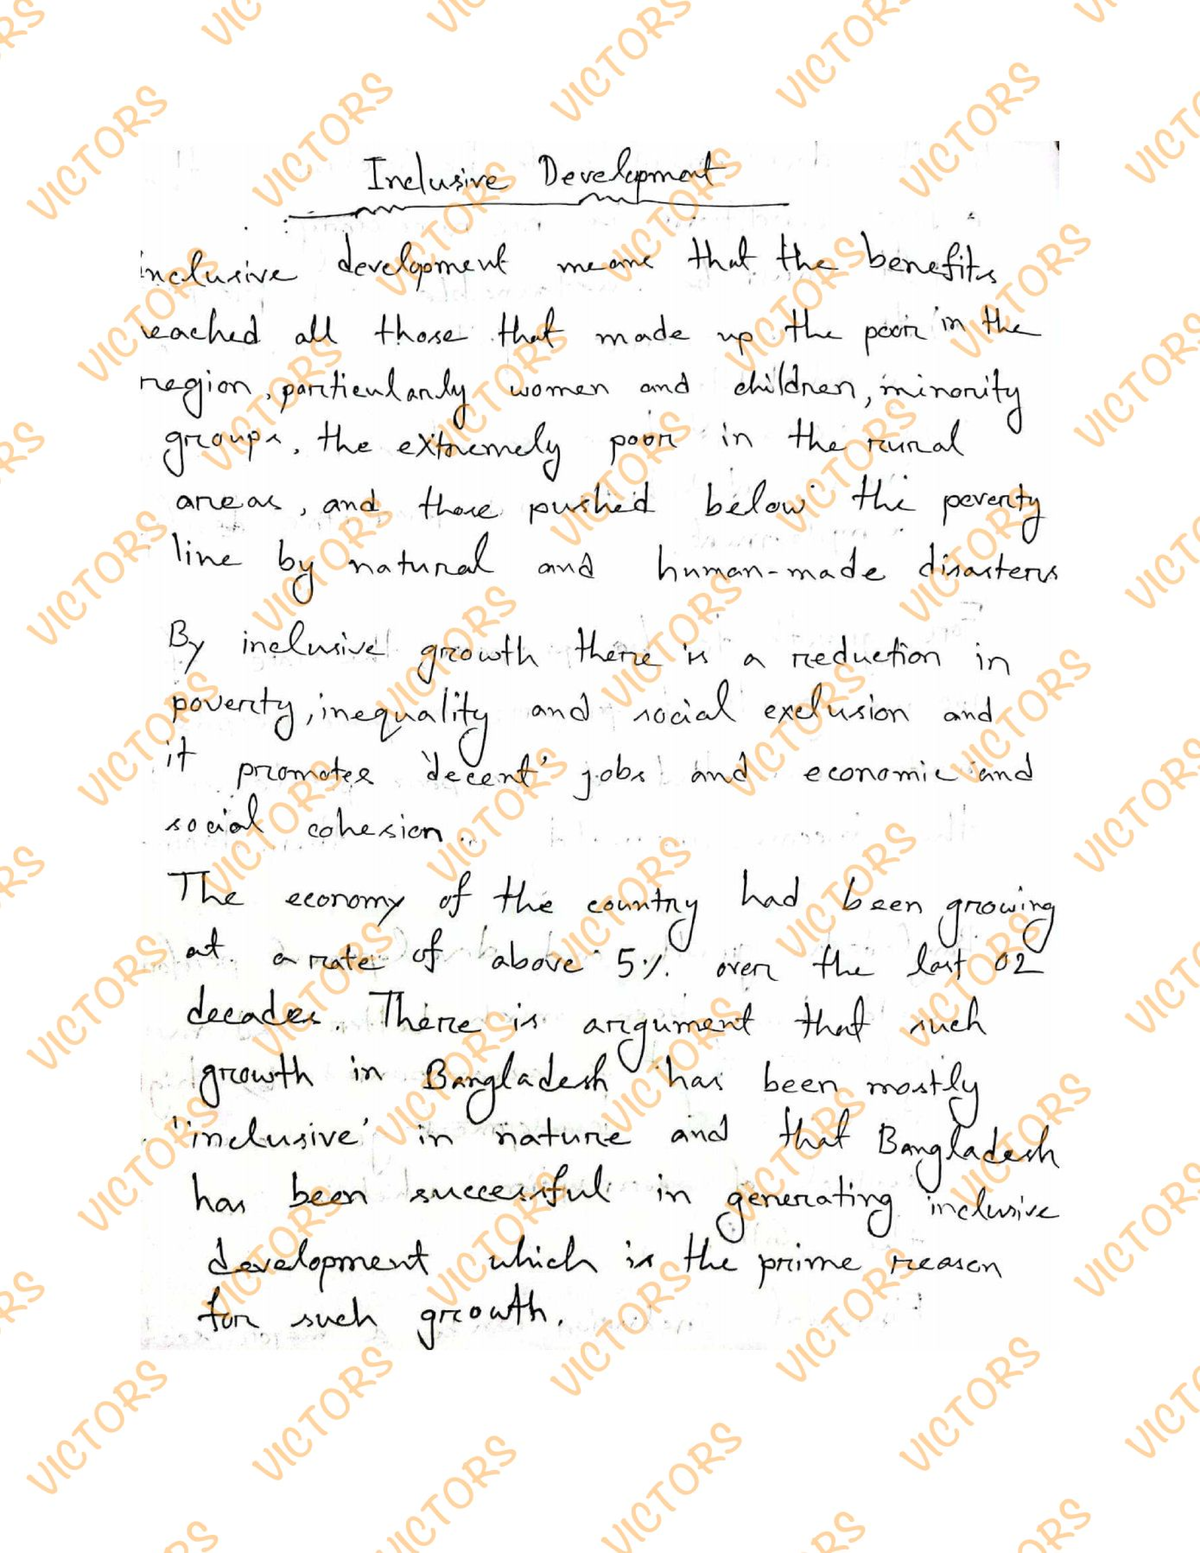 Inclusive Development
inclusive development means that the benefits
reached all those that made up the poor in the
region, particularly women and children, minority
groups, the extremely poor in the rural
areas, and those pushed below the poverty
line by natural and human-made disasters
By inclusive growth there is a reduction in
poverty, inequality and social exclusion and
it promotes 'decent' jobs and economic and
social cohesion.
The economy of the country had been growing
at a rate of above 5% over the last 02
decades. There is argument that such
growth in Bangladesh has been mostly
'inclusive' in nature and that Bangladesh
has been successful in generating inclusive
development which is the prime reason
for such growth.
VICTORS